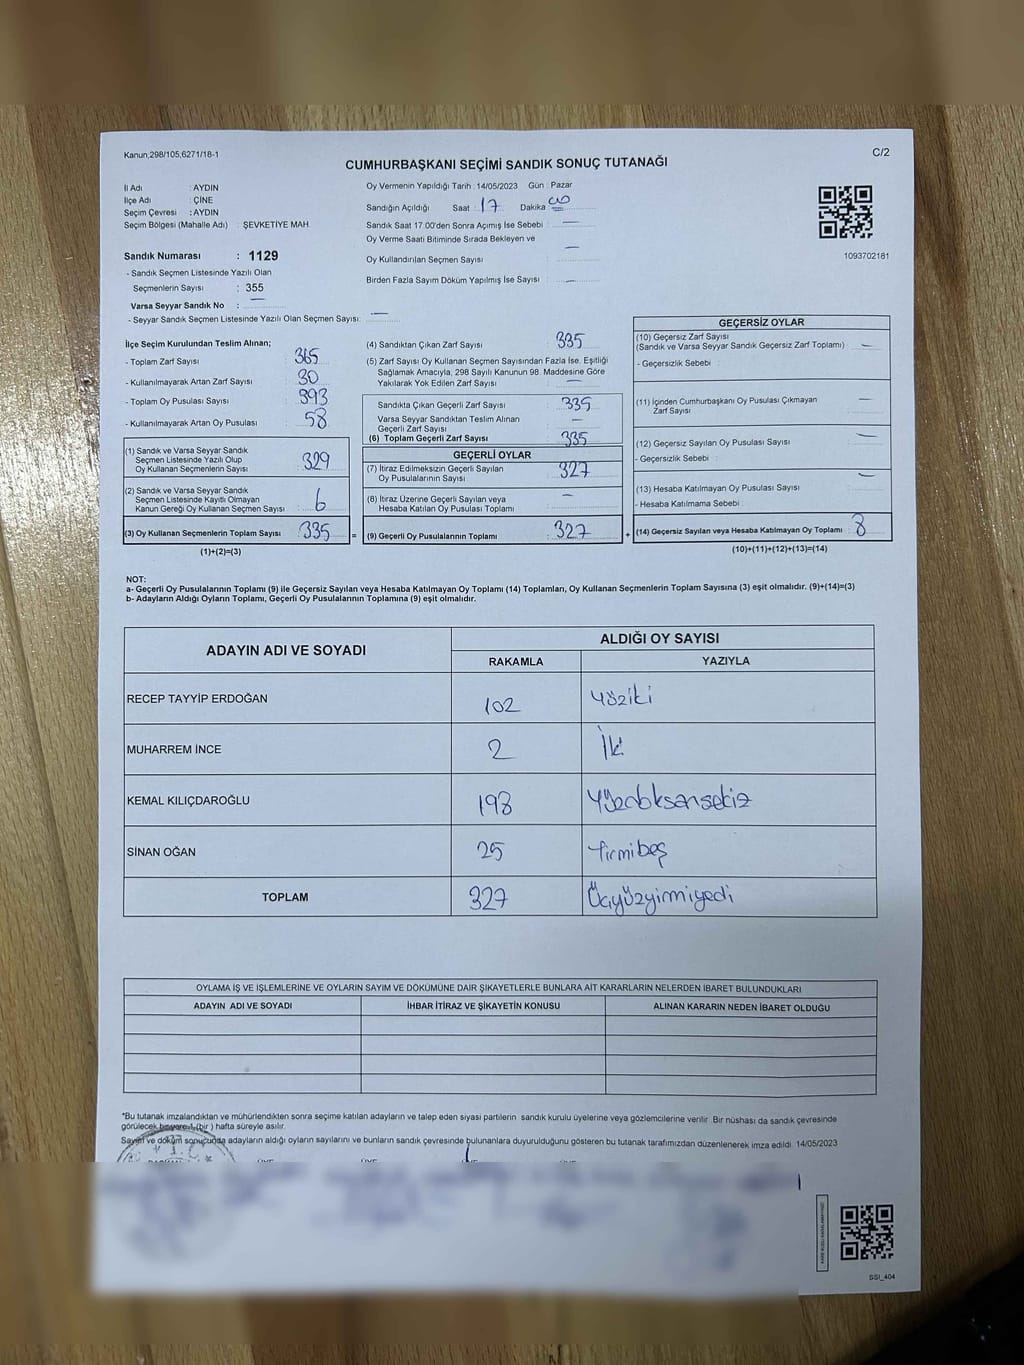 Kanun;298/105,6271/18-1
C/2
CUMHURBAŞKANI SEÇİMİ SANDIK SONUÇ TUTANAĞI
İl Adı : AYDIN
İlçe Adı : ÇİNE
Seçim Çevresi : AYDIN
Seçim Bölgesi (Mahalle Adı) : ŞEVKETİYE MAH.
Sandık Numarası : 1129
- Sandık Seçmen Listesinde Yazılı Olan
Seçmenlerin Sayısı : 355
Varsa Seyyar Sandık No : —
- Seyyar Sandık Seçmen Listesinde Yazılı Olan Seçmen Sayısı: —
Oy Vermenin Yapıldığı Tarih : 14/05/2023 Gün : Pazar
Sandığın Açıldığı Saat : 17 Dakika : 00
Sandık Saat 17:00'den Sonra Açımış İse Sebebi : —
Oy Verme Saati Bitiminde Sırada Bekleyen ve
Oy Kullandırılan Seçmen Sayısı : —
Birden Fazla Sayım Döküm Yapılmış İse Sayısı : —
1093702181
İlçe Seçim Kurulundan Teslim Alınan;
- Toplam Zarf Sayısı : 365
- Kullanılmayarak Artan Zarf Sayısı : 30
- Toplam Oy Pusulası Sayısı : 393
- Kullanılmayarak Artan Oy Pusulası : 58
(1) Sandık ve Varsa Seyyar Sandık
Seçmen Listesinde Yazılı Olup
Oy Kullanan Seçmenlerin Sayısı : 329
(2) Sandık ve Varsa Seyyar Sandık
Seçmen Listesinde Kayıtlı Olmayan
Kanun Gereği Oy Kullanan Seçmen Sayısı : 6
(3) Oy Kullanan Seçmenlerin Toplam Sayısı : 335 =
(1)+(2)=(3)
(4) Sandıktan Çıkan Zarf Sayısı : 335
(5) Zarf Sayısı Oy Kullanan Seçmen Sayısından Fazla İse, Eşitliği
Sağlamak Amacıyla, 298 Sayılı Kanunun 98. Maddesine Göre
Yakılarak Yok Edilen Zarf Sayısı : —
Sandıkta Çıkan Geçerli Zarf Sayısı : 335
Varsa Seyyar Sandıktan Teslim Alınan
Geçerli Zarf Sayısı : —
(6) Toplam Geçerli Zarf Sayısı : 335
GEÇERLİ OYLAR
(7) İtiraz Edilmeksizin Geçerli Sayılan
Oy Pusulalarının Sayısı : 327
(8) İtiraz Üzerine Geçerli Sayılan veya
Hesaba Katılan Oy Pusulası Toplamı : —
(9) Geçerli Oy Pusulalarının Toplamı : 327 +
GEÇERSİZ OYLAR
(10) Geçersiz Zarf Sayısı
(Sandık ve Varsa Seyyar Sandık Geçersiz Zarf Toplamı) : —
- Geçersizlik Sebebi :
(11) İçinden Cumhurbaşkanı Oy Pusulası Çıkmayan
Zarf Sayısı : —
(12) Geçersiz Sayılan Oy Pusulası Sayısı : —
- Geçersizlik Sebebi :
(13) Hesaba Katılmayan Oy Pusulası Sayısı : —
- Hesaba Katılmama Sebebi :
(14) Geçersiz Sayılan veya Hesaba Katılmayan Oy Toplamı : 8
(10)+(11)+(12)+(13)=(14)
NOT:
a- Geçerli Oy Pusulalarının Toplamı (9) ile Geçersiz Sayılan veya Hesaba Katılmayan Oy Toplamı (14) Toplamları, Oy Kullanan Seçmenlerin Toplam Sayısına (3) eşit olmalıdır. (9)+(14)=(3)
b- Adayların Aldığı Oyların Toplamı, Geçerli Oy Pusulalarının Toplamına (9) eşit olmalıdır.
ADAYIN ADI VE SOYADI
ALDIĞI OY SAYISI
RAKAMLA YAZIYLA
RECEP TAYYİP ERDOĞAN 102 yüziki
MUHARREM İNCE 2 İki
KEMAL KILIÇDAROĞLU 198 Yüzdoksansekiz
SİNAN OĞAN 25 Yirmibeş
TOPLAM 327 Üçyüzyirmiyedi
OYLAMA İŞ VE İŞLEMLERİNE VE OYLARIN SAYIM VE DÖKÜMÜNE DAİR ŞİKAYETLERLE BUNLARA AİT KARARLARIN NELERDEN İBARET BULUNDUKLARI
ADAYIN ADI VE SOYADI İHBAR İTİRAZ VE ŞİKAYETİN KONUSU ALINAN KARARIN NEDEN İBARET OLDUĞU
*Bu tutanak imzalandıktan ve mühürlendikten sonra seçime katılan adayların ve talep eden siyasi partilerin sandık kurulu üyelerine veya gözlemcilerine verilir. Bir nüshası da sandık çevresinde
görülecek bir yere 1 (bir) hafta süreyle asılır.
Sayım ve döküm sonucunda adayların aldığı oyların sayılarını ve bunların sandık çevresinde bulunanlara duyurulduğunu gösteren bu tutanak tarafımızdan düzenlenerek imza edildi. 14/05/2023
SSI_404